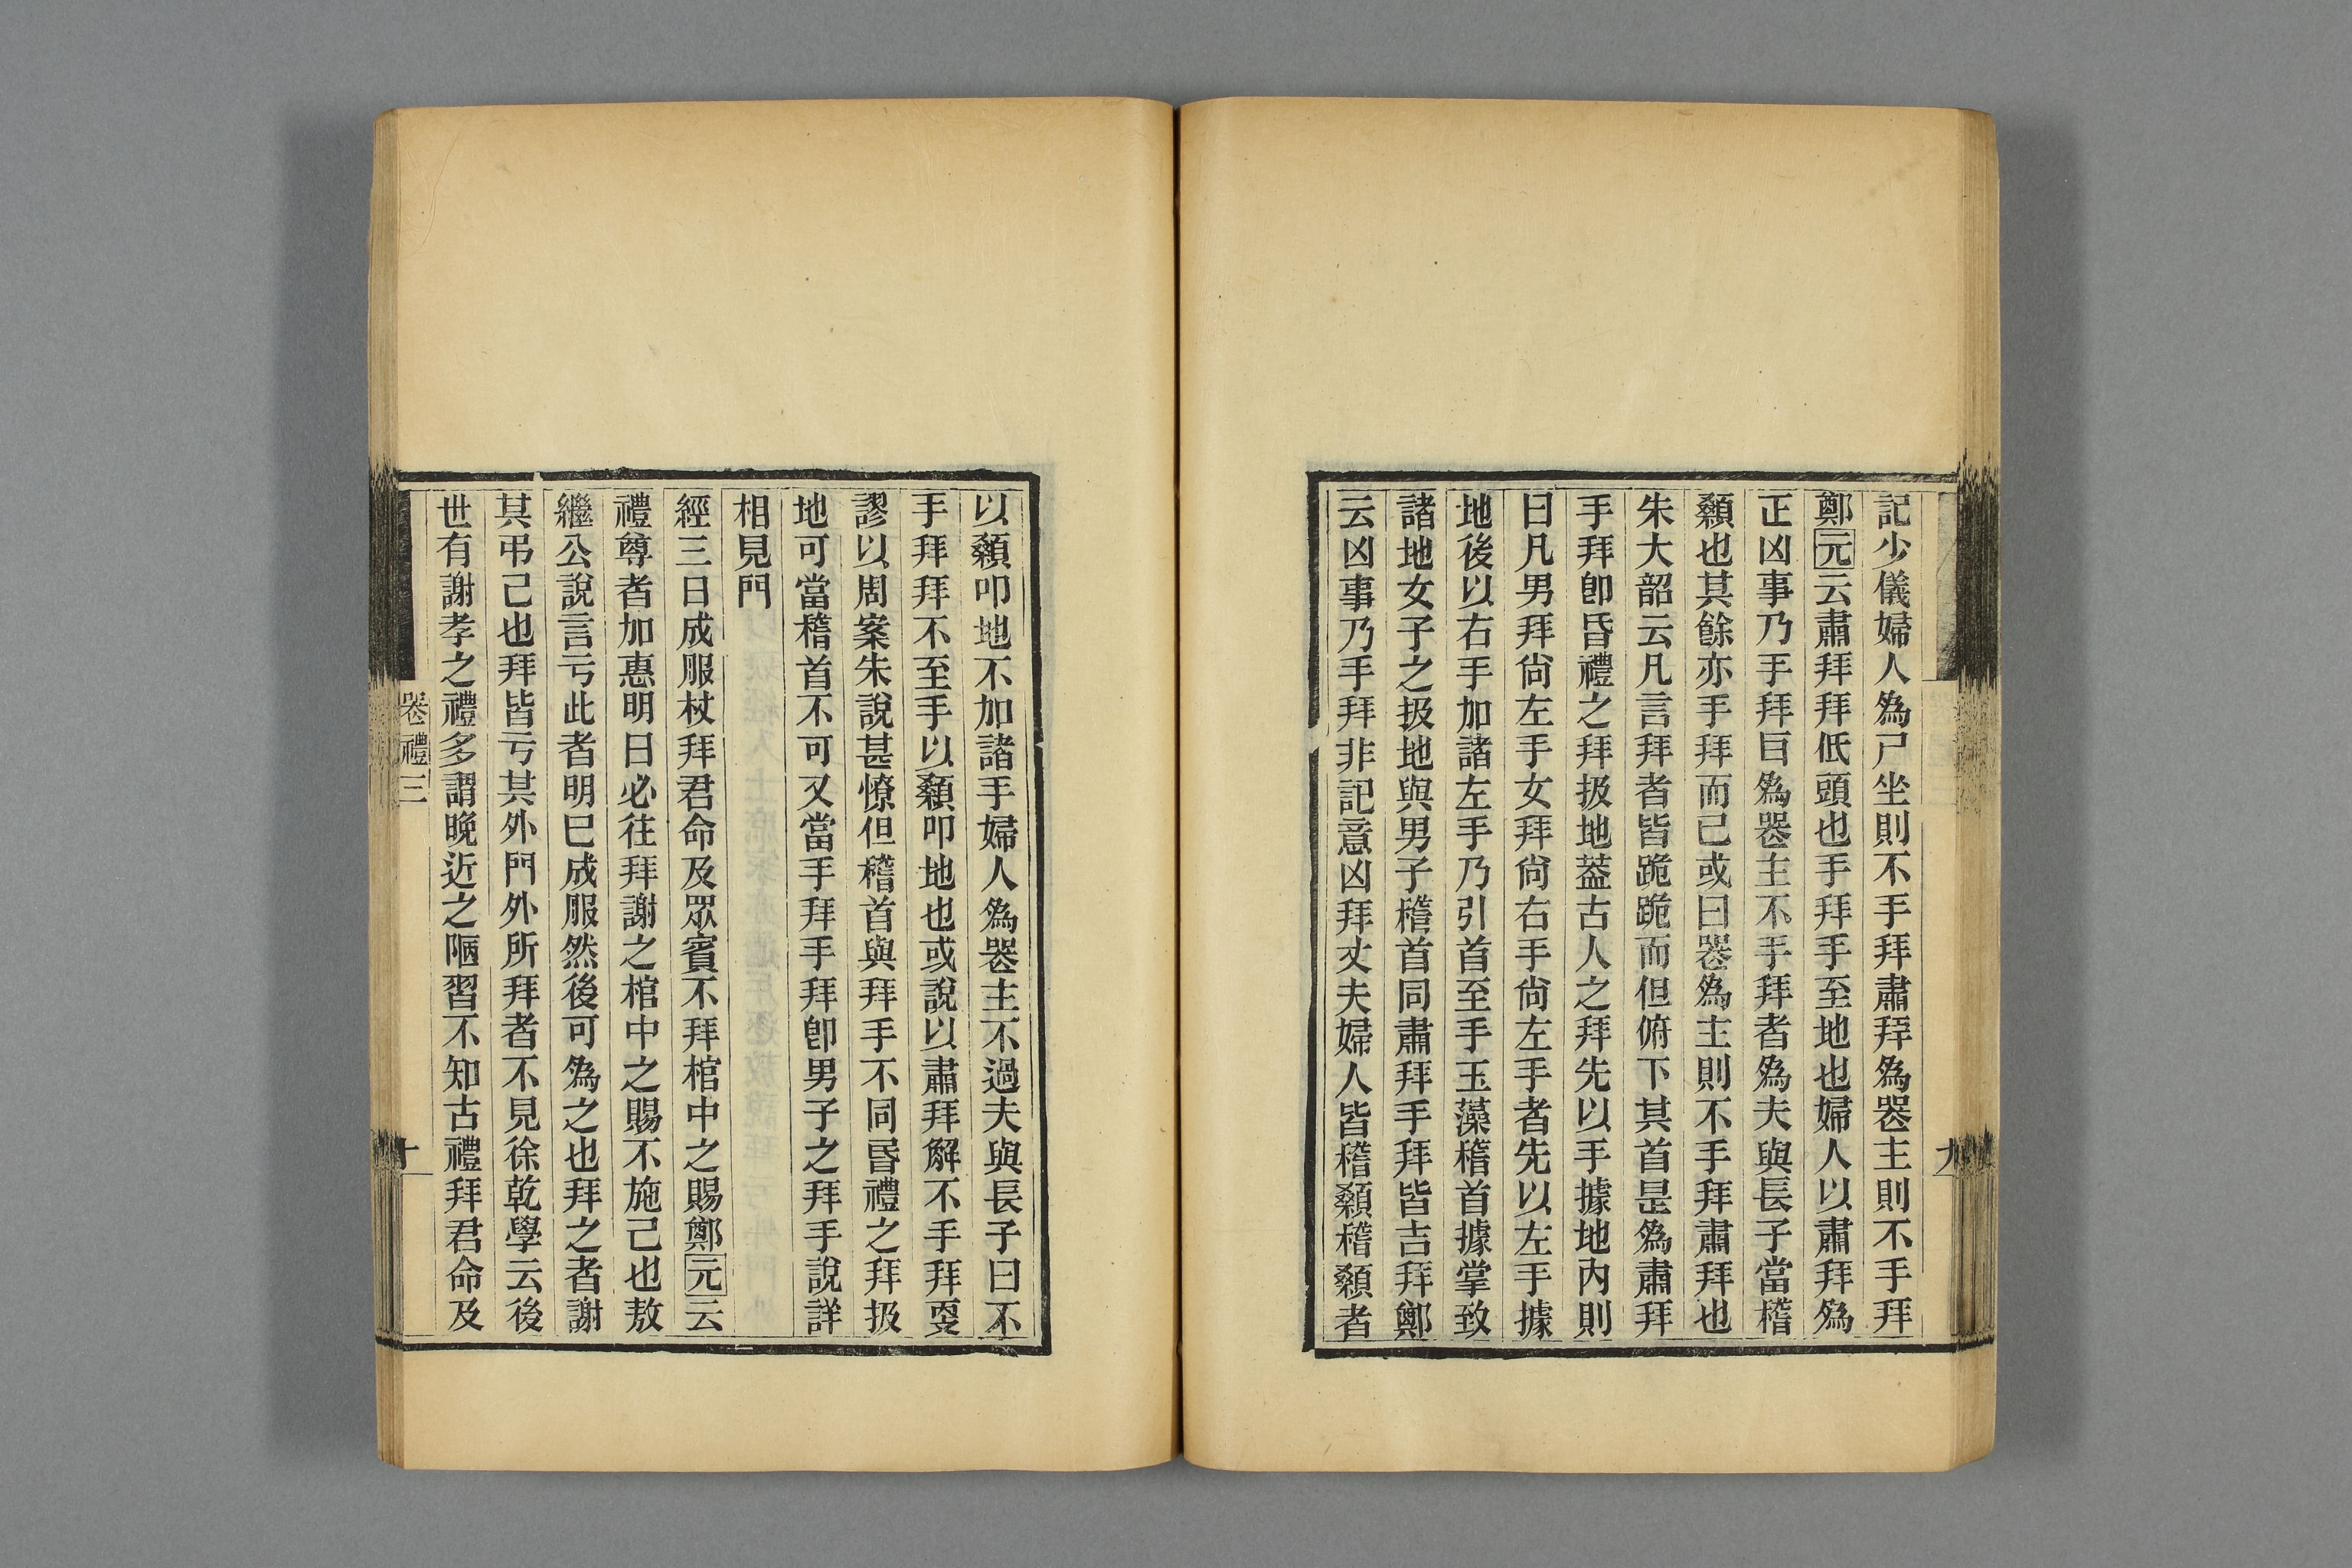 記少儀婦人爲尸坐則不手拜肅拜爲喪主則不手拜
鄭元云肅拜拜低頭也手拜手至地也婦人以肅拜爲
正凶事乃手拜㠯爲喪主不手拜者爲夫與長子當稽
顙也其餘亦手拜而已或曰喪爲主則不手拜肅拜也
朱大韶云凡言拜者皆跪跪而但俯下其首是爲肅拜
手拜卽昏禮之拜扱地葢古人之拜先以手據地內則
曰凡男拜尙左手女拜尙右手尙左手者先以左手據
地後以右手加諸左手乃引首至手玉藻稽首據掌致
諸地女子之扱地與男子稽首同肅拜手拜皆吉拜鄭
云凶事乃手拜非記意凶拜丈夫婦人皆稽顙稽顙者
九
以顙叩地不加諸手婦人爲喪主不過夫與長子曰不
手拜拜不至手以顙叩地也或說以肅拜解不手拜㪅
謬以周案朱說甚憭但稽首與拜手不同昏禮之拜扱
地可當稽首不可又當手拜手拜卽男子之拜手說詳
相見門
經三日成服杖拜君命及眾賓不拜棺中之賜鄭元云
禮尊者加惠明日必往拜謝之棺中之賜不施己也敖
繼公說言亏此者明已成服然後可爲之也拜之者謝
其弔己也拜皆亏其外門外所拜者不見徐乾學云後
世有謝孝之禮多謂晚近之陋習不知古禮拜君命及
喪禮三
十